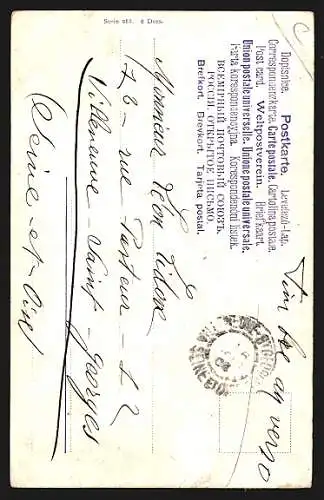 Serie 265. 6 Dess.
Dopisnice. Postkarte. Levelező-Lap.
Correspondenzkarte. Carte postale. Cartolina postale.
Post card. Weltpostverein. Briefkaart.
Union postale universelle. Unione postale universale.
Karta korespondencyjna. Korespondenční lístek.
ВСЕМІРНЫЙ ПОЧТОВЫЙ СОЮЗЪ.
РОССІЯ. ОТКРЫТОЕ ПИСЬМО.
Brefkort. Brevkort. Tarjeta postal.
Timbre au verso
Monsieur Léon
rue Pasteur
Villeneuve Saint-Georges
Seine-et-Oise